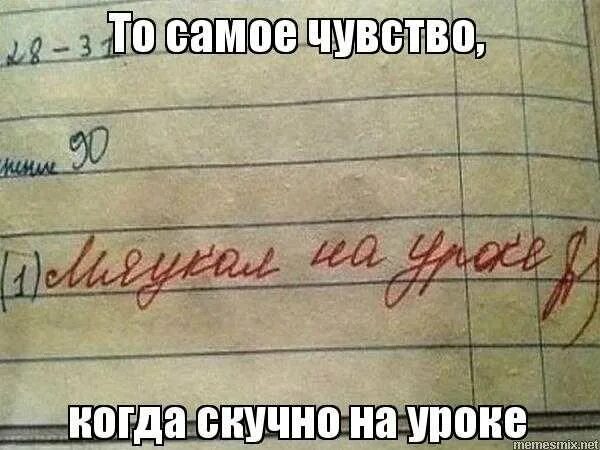 То самое чувство,
28-31
90
(1) Мяукал на уроке
когда скучно на уроке
memesmix.net